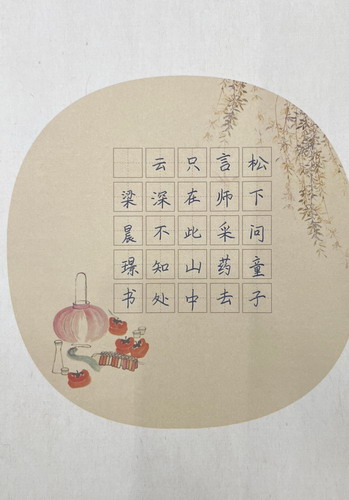 松下问童子
言师采药去
只在此山中
云深不知处
梁晨璟书